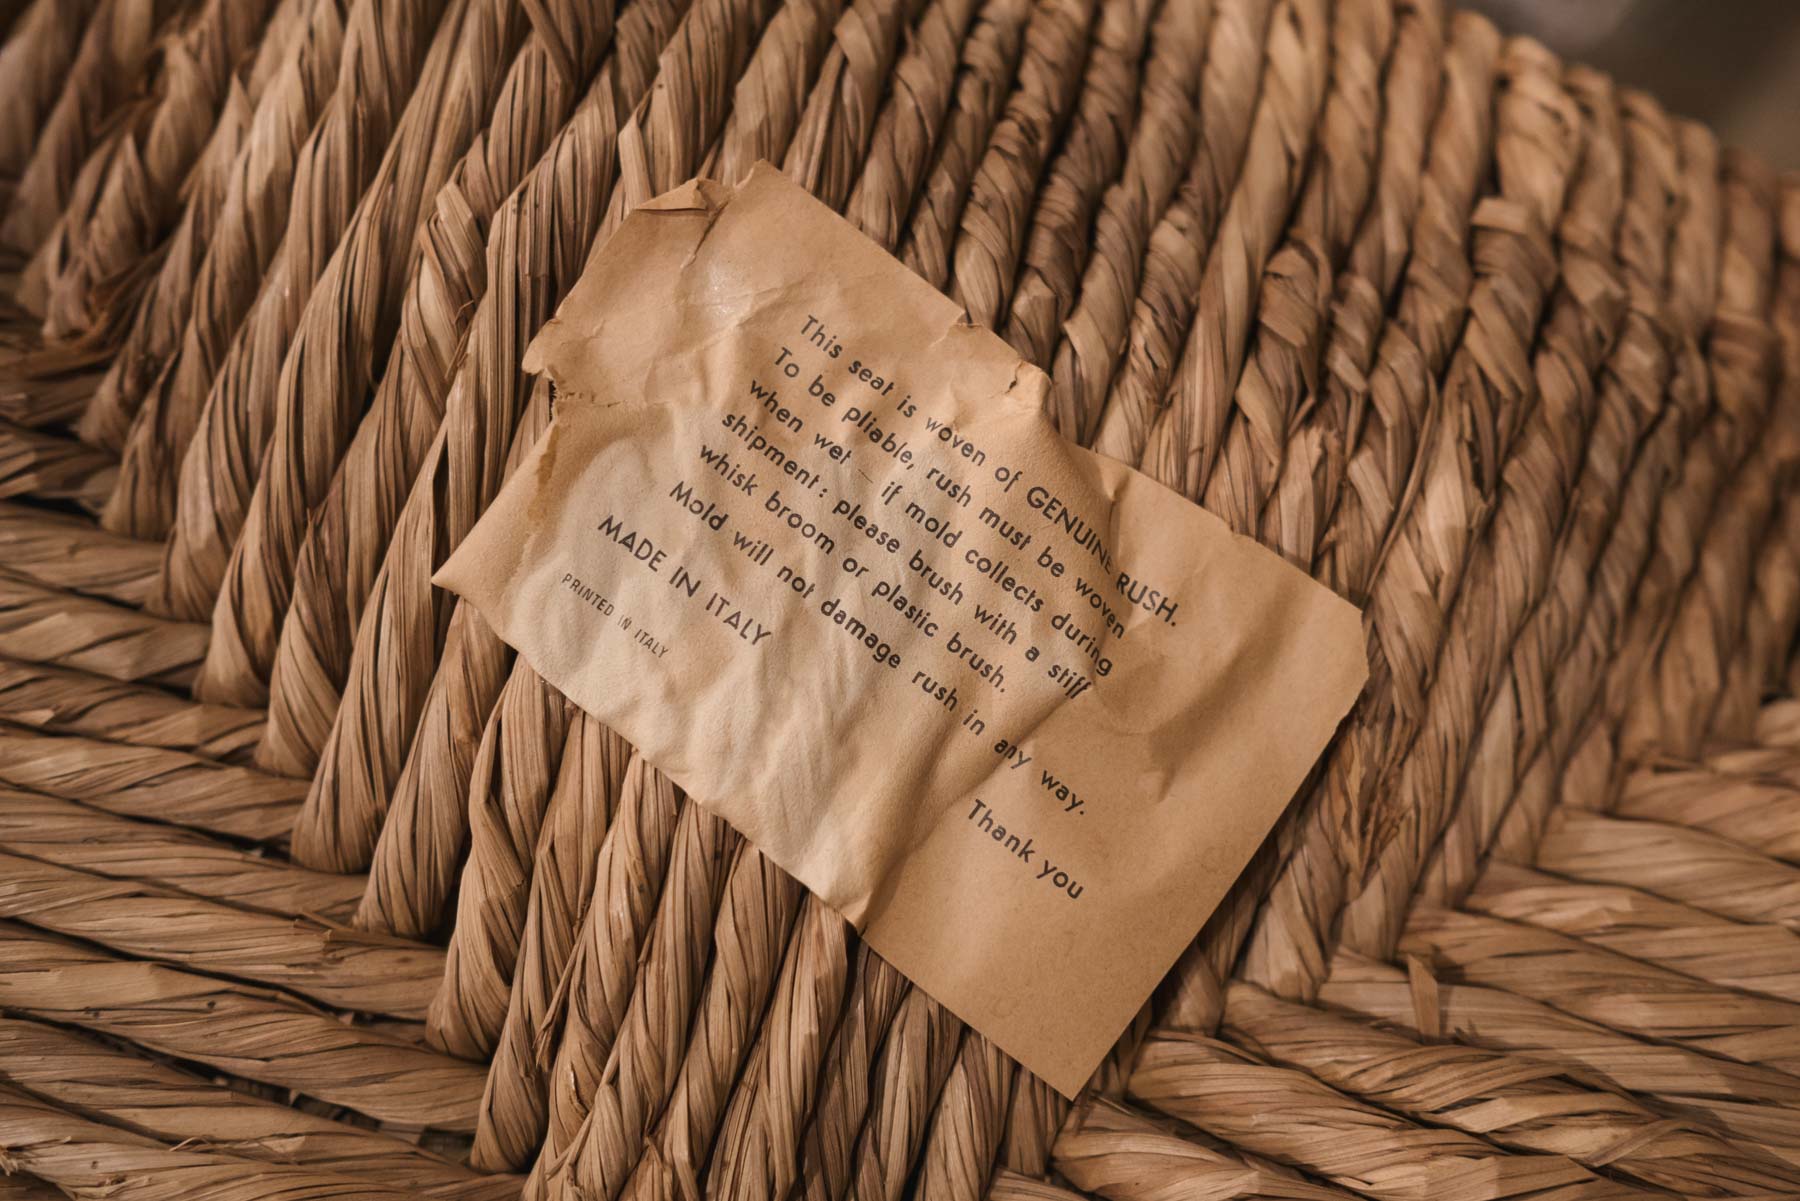 This seat is woven of GENUINE RUSH.
To be pliable, rush must be woven
when wet — if mold collects during
shipment: please brush with a stiff
whisk broom or plastic brush.
Mold will not damage rush in any way.
MADE IN ITALY
Thank you
PRINTED IN ITALY